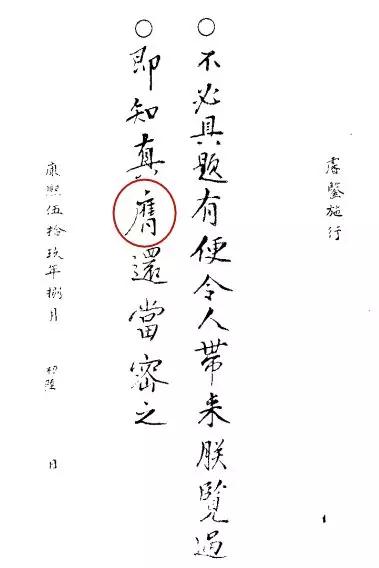 睿鑒施行
○不必具題有便令人帶来朕覽過
○即知真膺還當密之
康熙伍拾玖年捌月 初陸 日